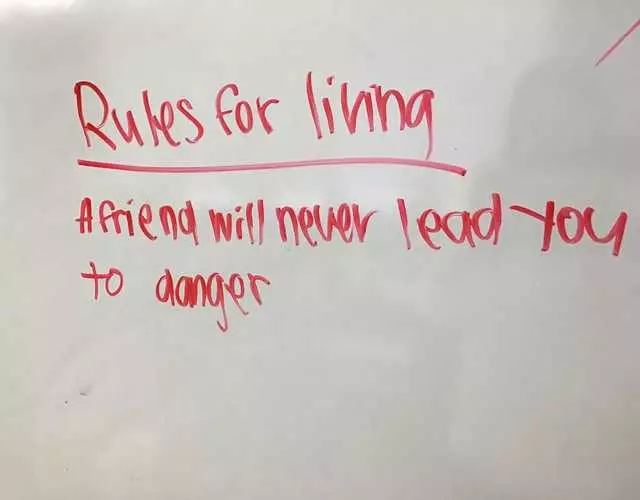 Rules for living
A friend will never lead you
to danger